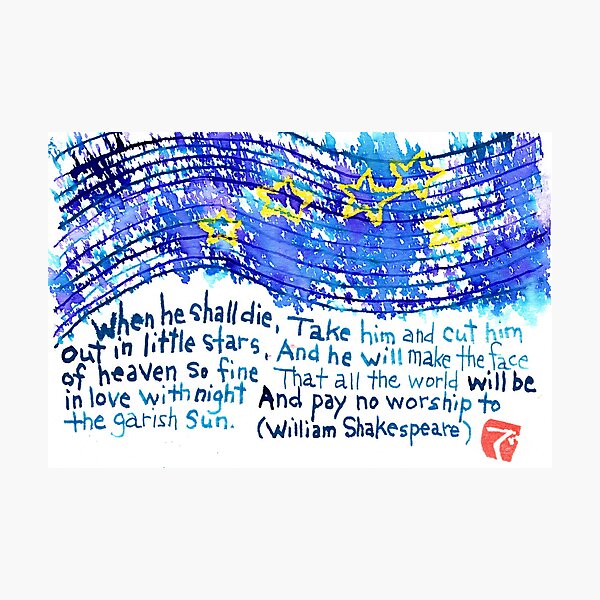 When he shall die, Take him and cut him
out in little stars, And he will make the face
of heaven so fine That all the world will be
in love with night And pay no worship to
the garish Sun. (William Shakespeare)
で